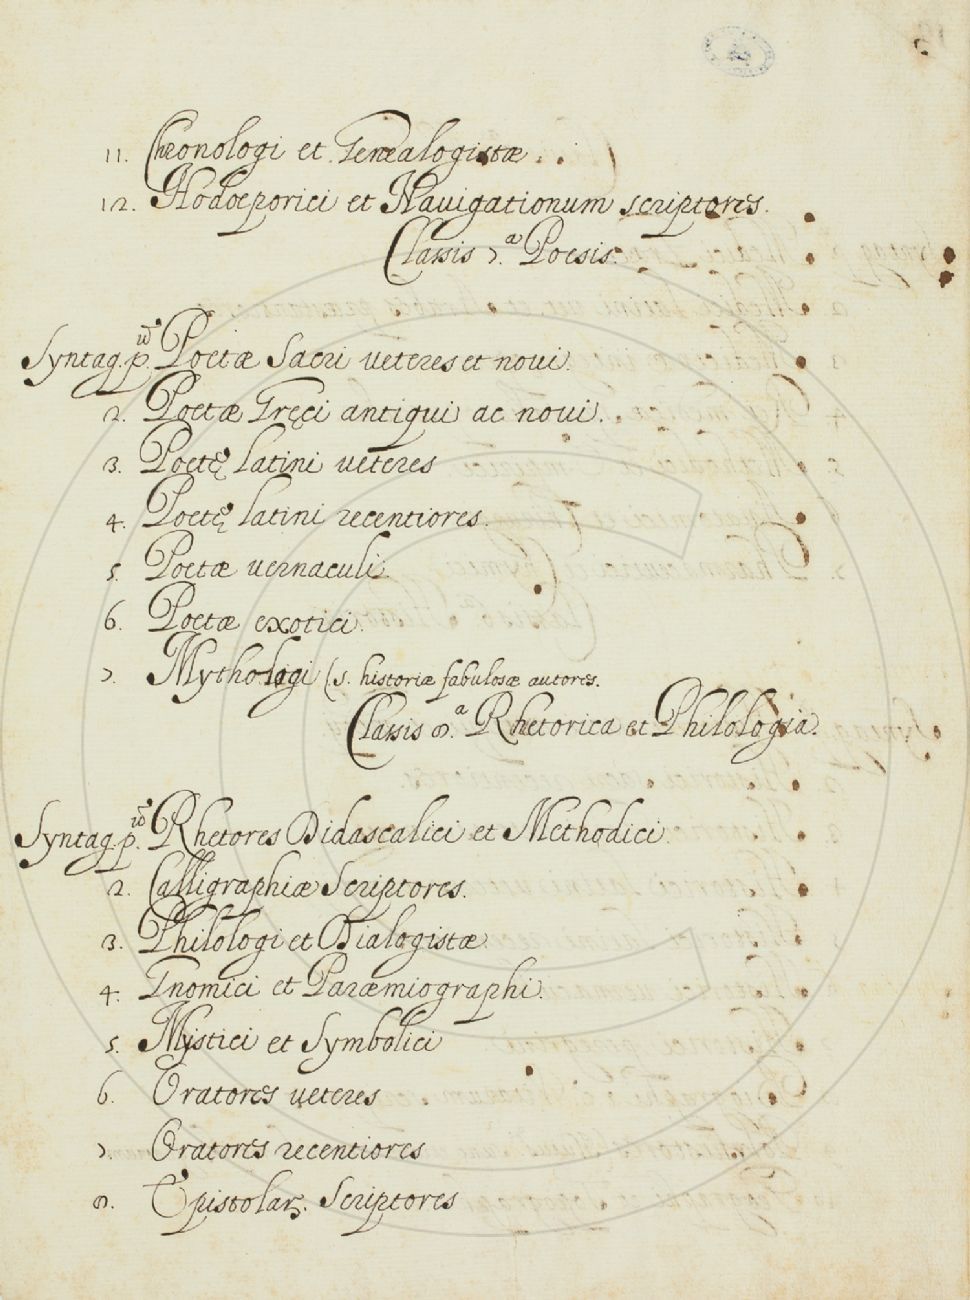 11. Chronologi et Genealogistæ.
12. Hodoeporici et Nauigationum scriptores.
Classis 7.ª Poesis.
Syntag. p.ũ Poetæ Sacri veteres et noui.
2. Poetæ Gręci antiqui ac noui.
3. Poetę latini veteres
4. Poetę latini recentiores.
5. Poetæ vernaculi.
6. Poetæ exotici.
7. Mythologi (s. historiæ fabulosæ autores.
Classis 8.ª Rhetorica et Philologia.
Syntag. p.ũ Rhetores Didascalici et Methodici.
2. Calligraphiæ Scriptores.
3. Philologi et Dialogistæ.
4. Gnomici et Paræmiographi.
5. Mystici et Symbolici
6. Oratores veteres
7. Oratores recentiores
8. Epistolarꝫ. Scriptores